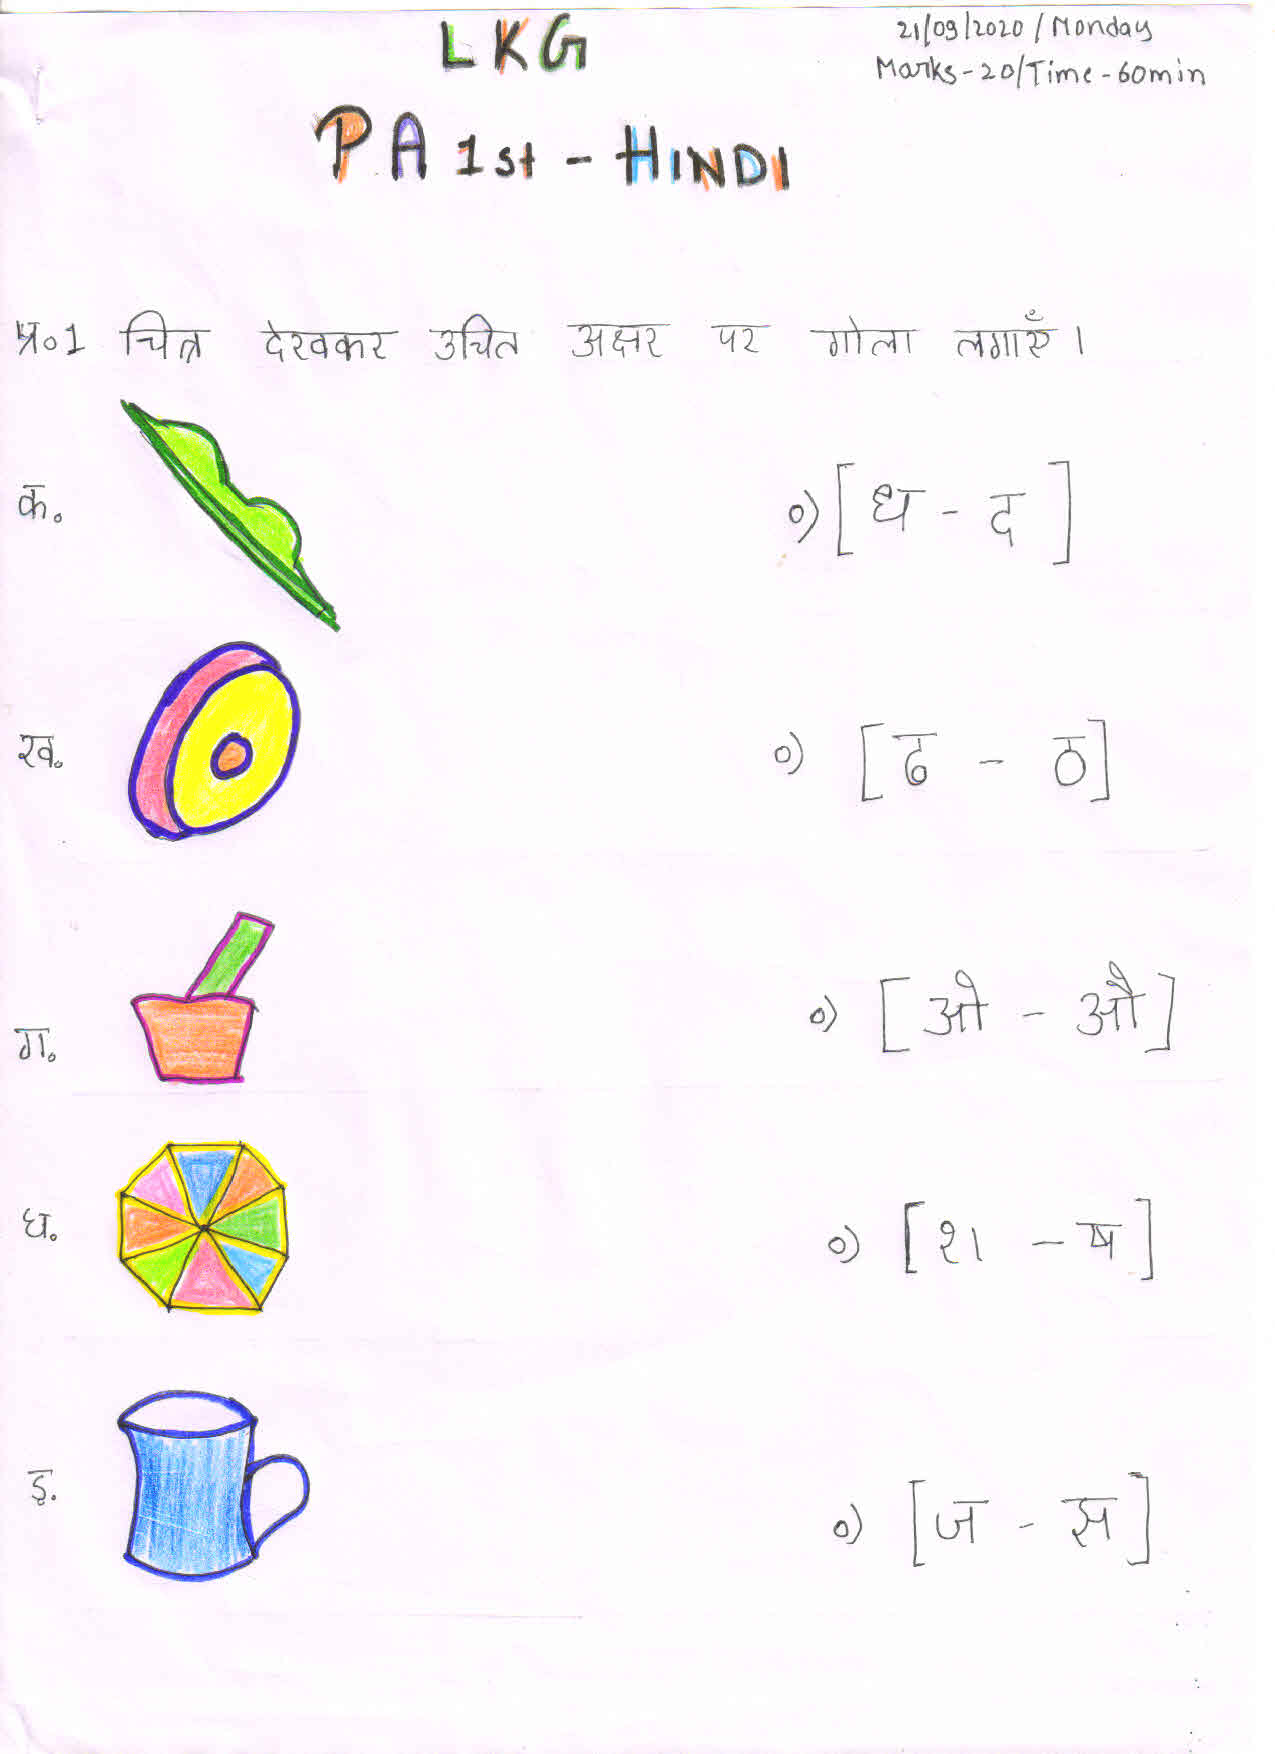 LKG
21/09/2020 / Monday
Marks - 20/Time - 60min
PA 1st - HINDI
प्र०1 चित्र देखकर उचित अक्षर पर गोला लगाएँ।
क. ०) [ध - द]
ख. ०) [ढ - ठ]
ग. ०) [ओ - औ]
घ. ०) [श - ष]
ङ. ०) [ज - झ]